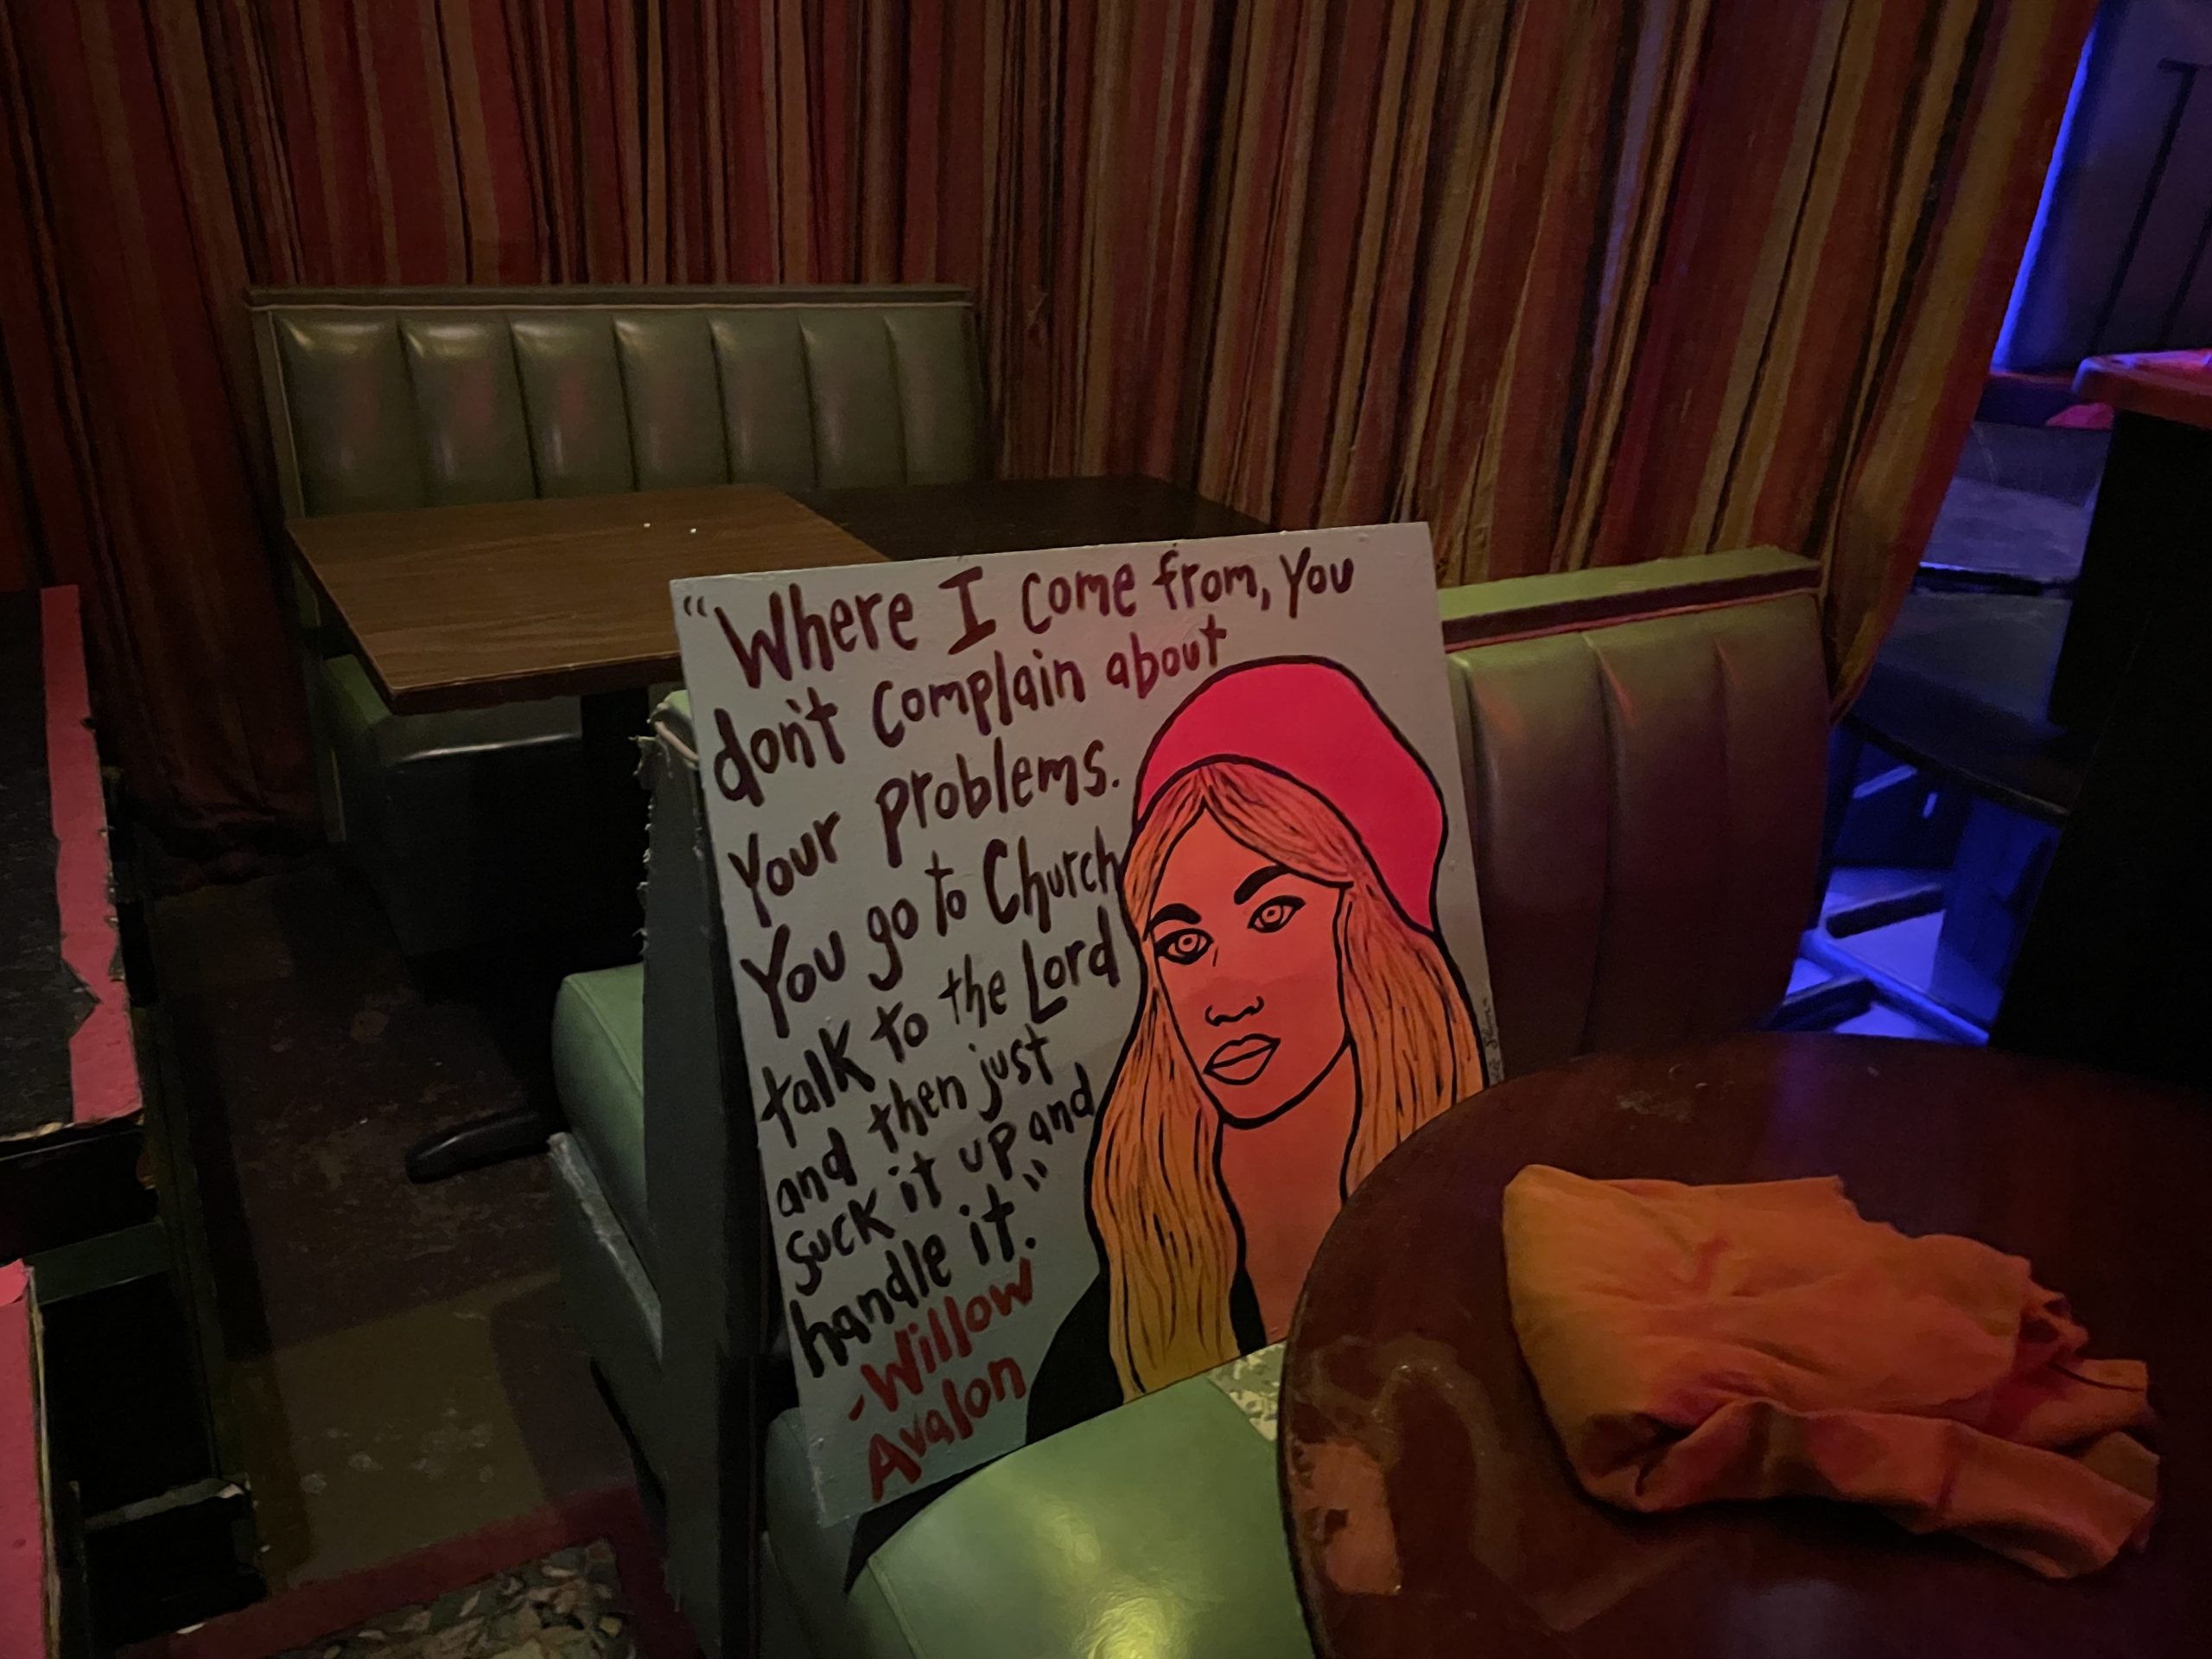 "Where I come from, you
don't complain about
your problems.
You go to Church
talk to the Lord
and then just
suck it up and
handle it."
-Willow
Avalon